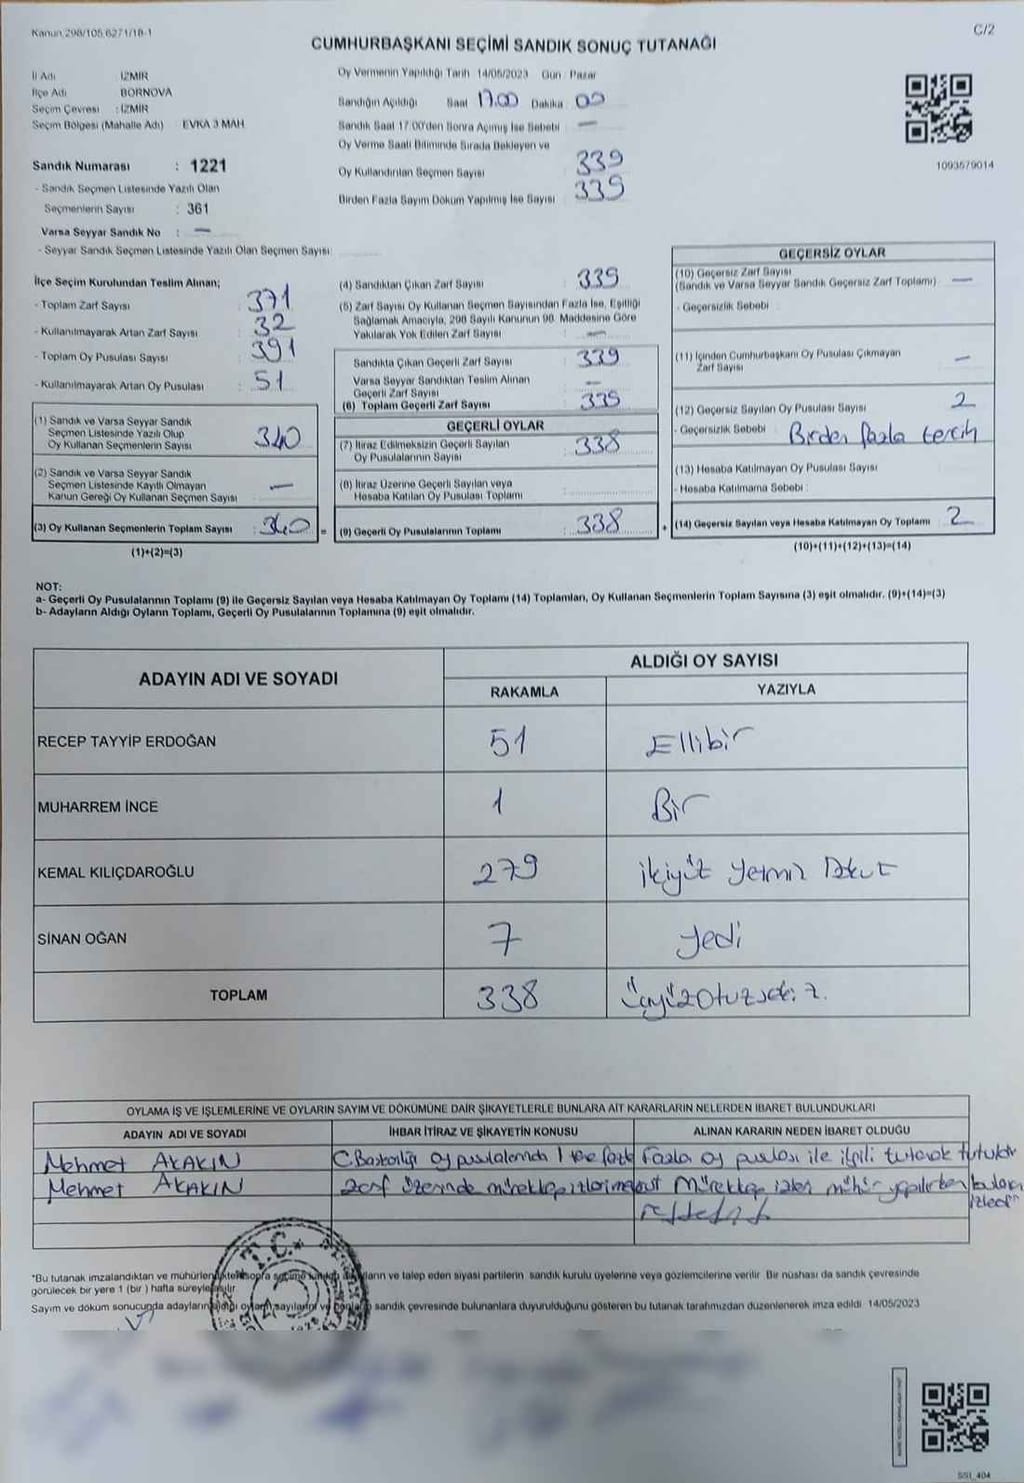 Kanun 298/105,6271/18-1
C/2
CUMHURBAŞKANI SEÇİMİ SANDIK SONUÇ TUTANAĞI
İl Adı İZMİR
İlçe Adı BORNOVA
Seçim Çevresi : İZMİR
Seçim Bölgesi (Mahalle Adı) EVKA 3 MAH
Sandık Numarası : 1221
- Sandık Seçmen Listesinde Yazılı Olan
Seçmenlerin Sayısı : 361
Varsa Seyyar Sandık No : —
- Seyyar Sandık Seçmen Listesinde Yazılı Olan Seçmen Sayısı
Oy Vermenin Yapıldığı Tarih 14/05/2023 Gün : Pazar
Sandığın Açıldığı Saat 17.00 Dakika 00
Sandık Saat 17:00'den Sonra Açılmış İse Sebebi —
Oy Verme Saati Bitiminde Sırada Bekleyen ve
Oy Kullandırılan Seçmen Sayısı 339
Birden Fazla Sayım Döküm Yapılmış İse Sayısı 339
1093579014
İlçe Seçim Kurulundan Teslim Alınan;
- Toplam Zarf Sayısı : 371
- Kullanılmayarak Artan Zarf Sayısı : 32
- Toplam Oy Pusulası Sayısı : 391
- Kullanılmayarak Artan Oy Pusulası : 51
(1) Sandık ve Varsa Seyyar Sandık
Seçmen Listesinde Yazılı Olup
Oy Kullanan Seçmenlerin Sayısı : 340
(2) Sandık ve Varsa Seyyar Sandık
Seçmen Listesinde Kayıtlı Olmayan
Kanun Gereği Oy Kullanan Seçmen Sayısı —
(3) Oy Kullanan Seçmenlerin Toplam Sayısı : 340 =
(1)+(2)=(3)
(4) Sandıktan Çıkan Zarf Sayısı : 339
(5) Zarf Sayısı Oy Kullanan Seçmen Sayısından Fazla İse, Eşitliği
Sağlamak Amacıyla, 298 Sayılı Kanunun 98. Maddesine Göre
Yakılarak Yok Edilen Zarf Sayısı : —
Sandıkta Çıkan Geçerli Zarf Sayısı : 339
Varsa Seyyar Sandıktan Teslim Alınan
Geçerli Zarf Sayısı : —
(6) Toplam Geçerli Zarf Sayısı : 339
GEÇERLİ OYLAR
(7) İtiraz Edilmeksizin Geçerli Sayılan
Oy Pusulalarının Sayısı : 338
(8) İtiraz Üzerine Geçerli Sayılan veya
Hesaba Katılan Oy Pusulası Toplamı
(9) Geçerli Oy Pusulalarının Toplamı : 338 +
GEÇERSİZ OYLAR
(10) Geçersiz Zarf Sayısı
(Sandık ve Varsa Seyyar Sandık Geçersiz Zarf Toplamı) —
- Geçersizlik Sebebi
(11) İçinden Cumhurbaşkanı Oy Pusulası Çıkmayan
Zarf Sayısı —
(12) Geçersiz Sayılan Oy Pusulası Sayısı 2
- Geçersizlik Sebebi Birden fazla tercih
(13) Hesaba Katılmayan Oy Pusulası Sayısı
- Hesaba Katılmama Sebebi :
(14) Geçersiz Sayılan veya Hesaba Katılmayan Oy Toplamı 2
(10)+(11)+(12)+(13)=(14)
NOT:
a- Geçerli Oy Pusulalarının Toplamı (9) ile Geçersiz Sayılan veya Hesaba Katılmayan Oy Toplamı (14) Toplamları, Oy Kullanan Seçmenlerin Toplam Sayısına (3) eşit olmalıdır. (9)+(14)=(3)
b- Adayların Aldığı Oyların Toplamı, Geçerli Oy Pusulalarının Toplamına (9) eşit olmalıdır.
ADAYIN ADI VE SOYADI
ALDIĞI OY SAYISI
RAKAMLA YAZIYLA
RECEP TAYYİP ERDOĞAN 51 Ellibir
MUHARREM İNCE 1 Bir
KEMAL KILIÇDAROĞLU 279
SİNAN OĞAN 7 Yedi
TOPLAM 338
OYLAMA İŞ VE İŞLEMLERİNE VE OYLARIN SAYIM VE DÖKÜMÜNE DAİR ŞİKAYETLERLE BUNLARA AİT KARARLARIN NELERDEN İBARET BULUNDUKLARI
ADAYIN ADI VE SOYADI İHBAR İTİRAZ VE ŞİKAYETİN KONUSU ALINAN KARARIN NEDEN İBARET OLDUĞU
Mehmet AKAKIN Fazla oy pusulası ile ilgili tutanak tutuldu
Mehmet AKAKIN Zarf üzerinde mürekkep
T.C.
"Bu tutanak imzalandıktan ve mühürlendikten sonra
ve talep eden siyasi partilerin sandık kurulu üyelerine veya gözlemcilerine verilir. Bir nüshası da sandık çevresinde
görülecek bir yere 1 (bir) hafta süreyle asılır
Sayım ve döküm sonucunda adayların aldığı oy sayılarını ve bunların sandık çevresinde bulunanlara duyurulduğunu gösteren bu tutanak tarafımızdan düzenlenerek imza edildi. 14/05/2023
SSI_404